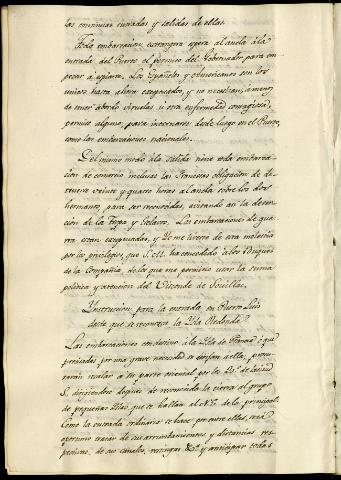 las continuas entradas y salidas de ellas.
Toda embarcacion extrangera espera al ancla á la
entrada del Puerto el permiso del Gobernador para em-
pezar a espiarse. Los Españoles y Americanos son los
unicos hasta ahora exeptuados, y no necesitan, á menos
de tener abordo viruelas ú otra enfermedad contagiosa,
permiso alguno, para internarse desde luego en el Puerto,
como las embarcaciones nacionales.
Del mismo modo á la salida tiene toda embarca-
cion de comercio inclusas las Francesas obligacion de de-
tenerse veinte y quatro horas al ancla sobre los dos
hermanos para ser reconocidas, evitando asi la deser-
cion de la tropa y Esclavos. Las embarcaciones de gue-
rra estan exeptuadas, y Yo me liverte de esa molestia
por los privilegios, que S. M. ha concedido á los Buques
de la Compañia, de los que me permitió usar la suma
politica y atencion del Visconde de Souillac.
Instruccion para la entrada en Puerto Luis
desde que se reconozca la Ysla Redonda.
Las embarcaciones con destino á la Ysla de Francia ó que
precisadas por una grave necesidad se dirijan á ella, procu-
rarán recalar á su parte oriental por los 20.° de latitud
S. dirigiendose despues de reconocida la tierra al grupo
de pequeñas Yslas que se hallan al N.E. de la principal.
Como la entrada ordinaria se hace por entre ellas, será
oportuno tratar de sus arrumbamientos y distancias res-
pectivas, de sus canales, restingas &.a y anticipar todas